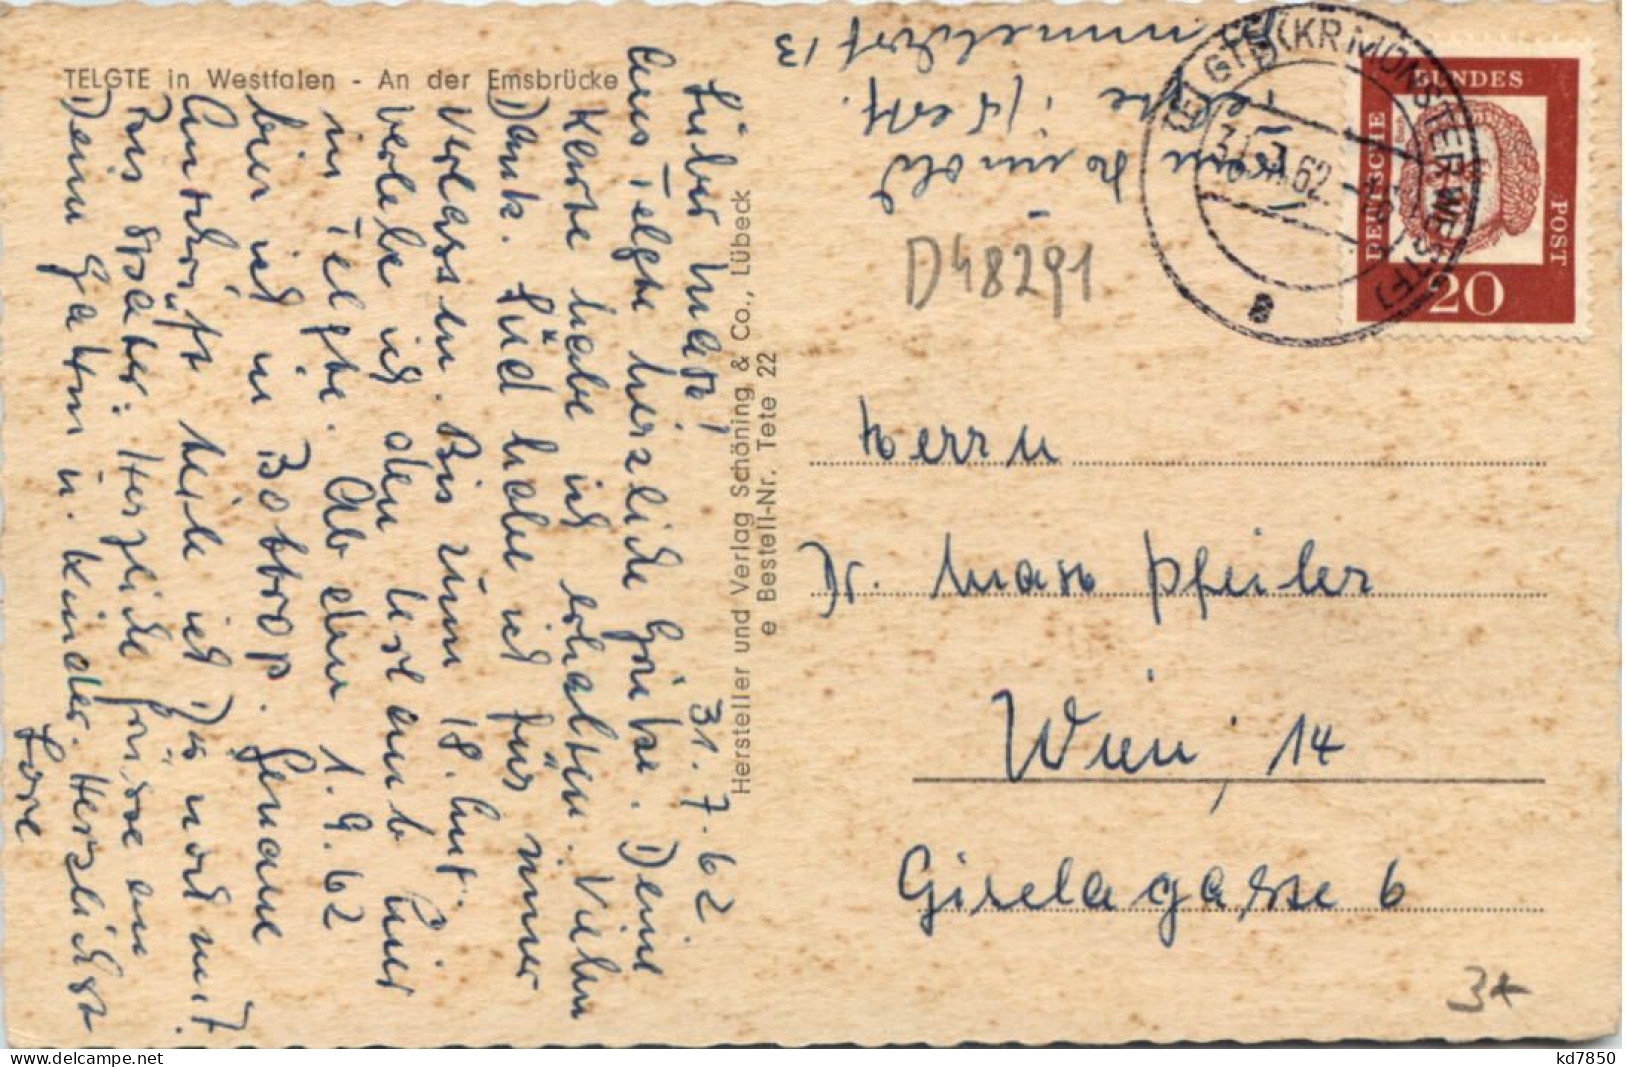 TELGTE in Westfalen - An der Emsbrücke
31.7.62
Lieber Max!
Aus Telgte herzliche Grüße. Deine
Karte habe ich erhalten. Vielen
Dank. Süd habe ich für immer
verlassen. Bis zum 18. Aug.
verlebe ich den Urlaub hier
in Telgte. Ab dem 1.9.62
bin ich in Bottrop. Genaue
Anschrift teile ich Dir noch mit.
Bis später. Herzliche Grüsse an
Deine Gattin u. Kinder. Herzlichst
Lore
Hersteller und Verlag Schöning & Co., Lübeck
e Bestell-Nr. Tete 22
Telgte i/Westf.
D48291
TELGTE (KR MÜNSTER WESTF)
31.7.62
a
DEUTSCHE
BUNDES
POST
20
Herrn
Dr. Max Pfeiler
Wien, 14
Giselagasse 6
3*
kd7850